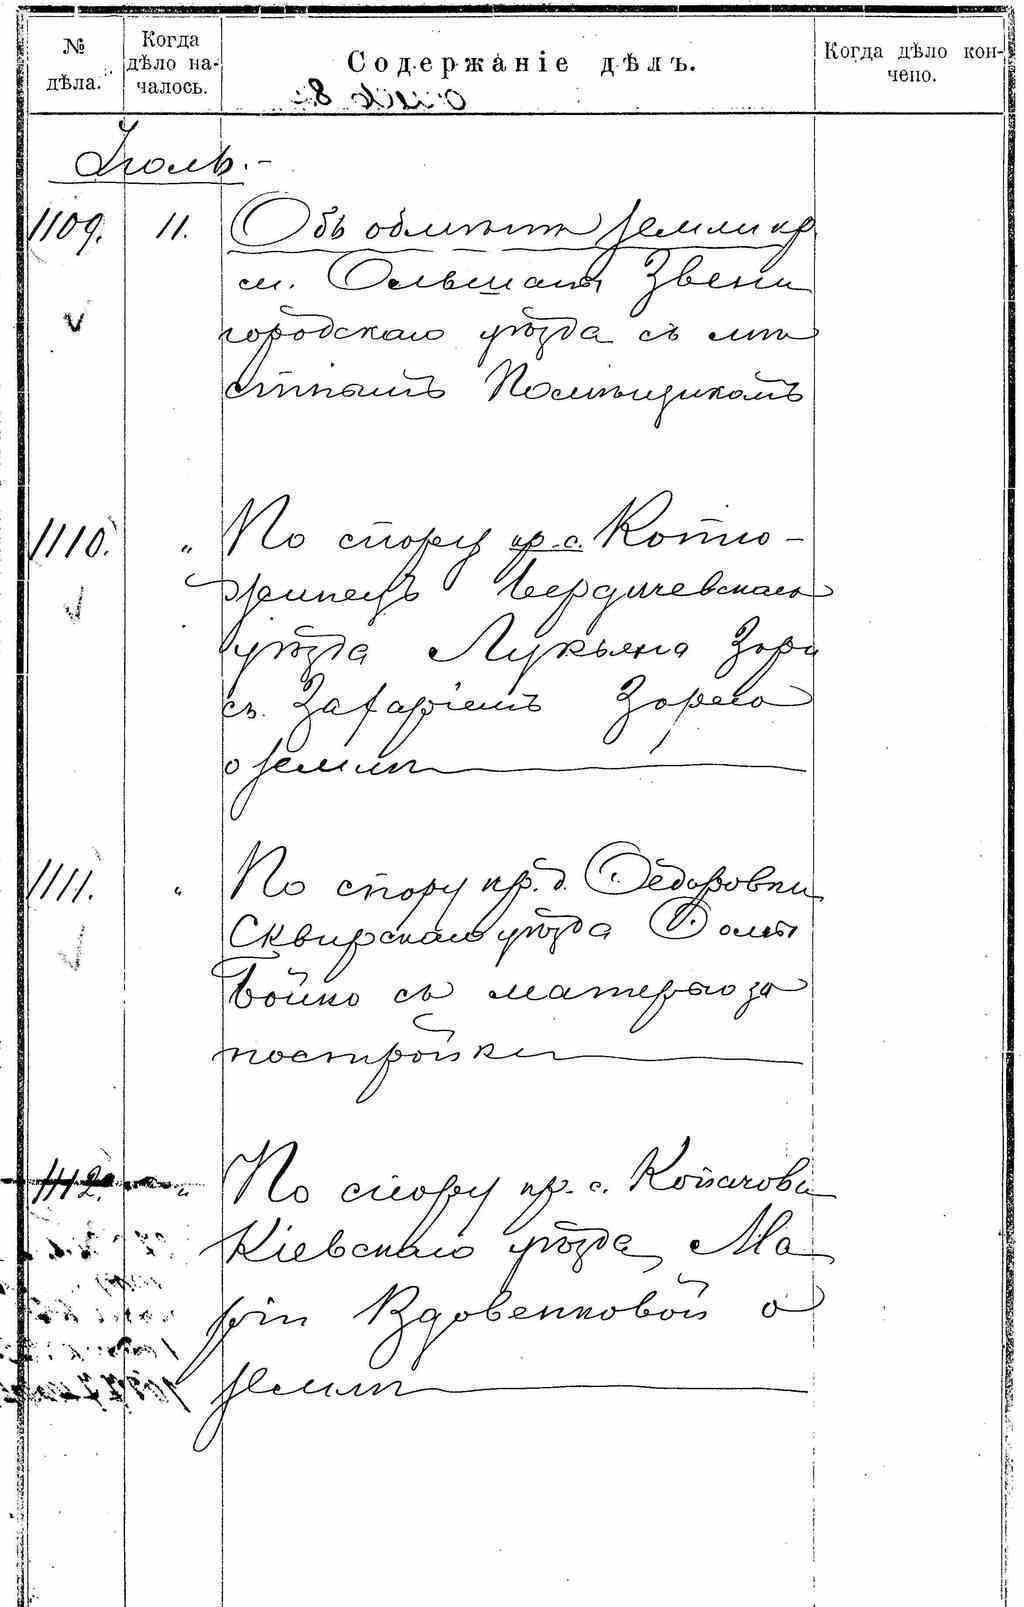 № дѣла.
Когда дѣло началось.
Содержаніе дѣлъ.
Когда дѣло кончено.
Іюль.-
1109. 11. Объ обмѣнѣ земли кр.
м. Ольшаны Звени
городскаго уѣзда съ мѣ
стнымъ Помѣщикомъ
1110. " По спору кр. с. Котлю-
жинецъ Бердичевскаго
уѣзда Лукьяна Зори
съ Захаріемъ Зорею
о землѣ
1111. " По спору кр. д. Ѳедоровки
Сквирскаго уѣзда Ѳомы
Бойко съ матерью за
постройки
1112. " По спору кр. с. Копачова
Кіевскаго уѣзда Ма
ріи Вдовенковой о
землѣ